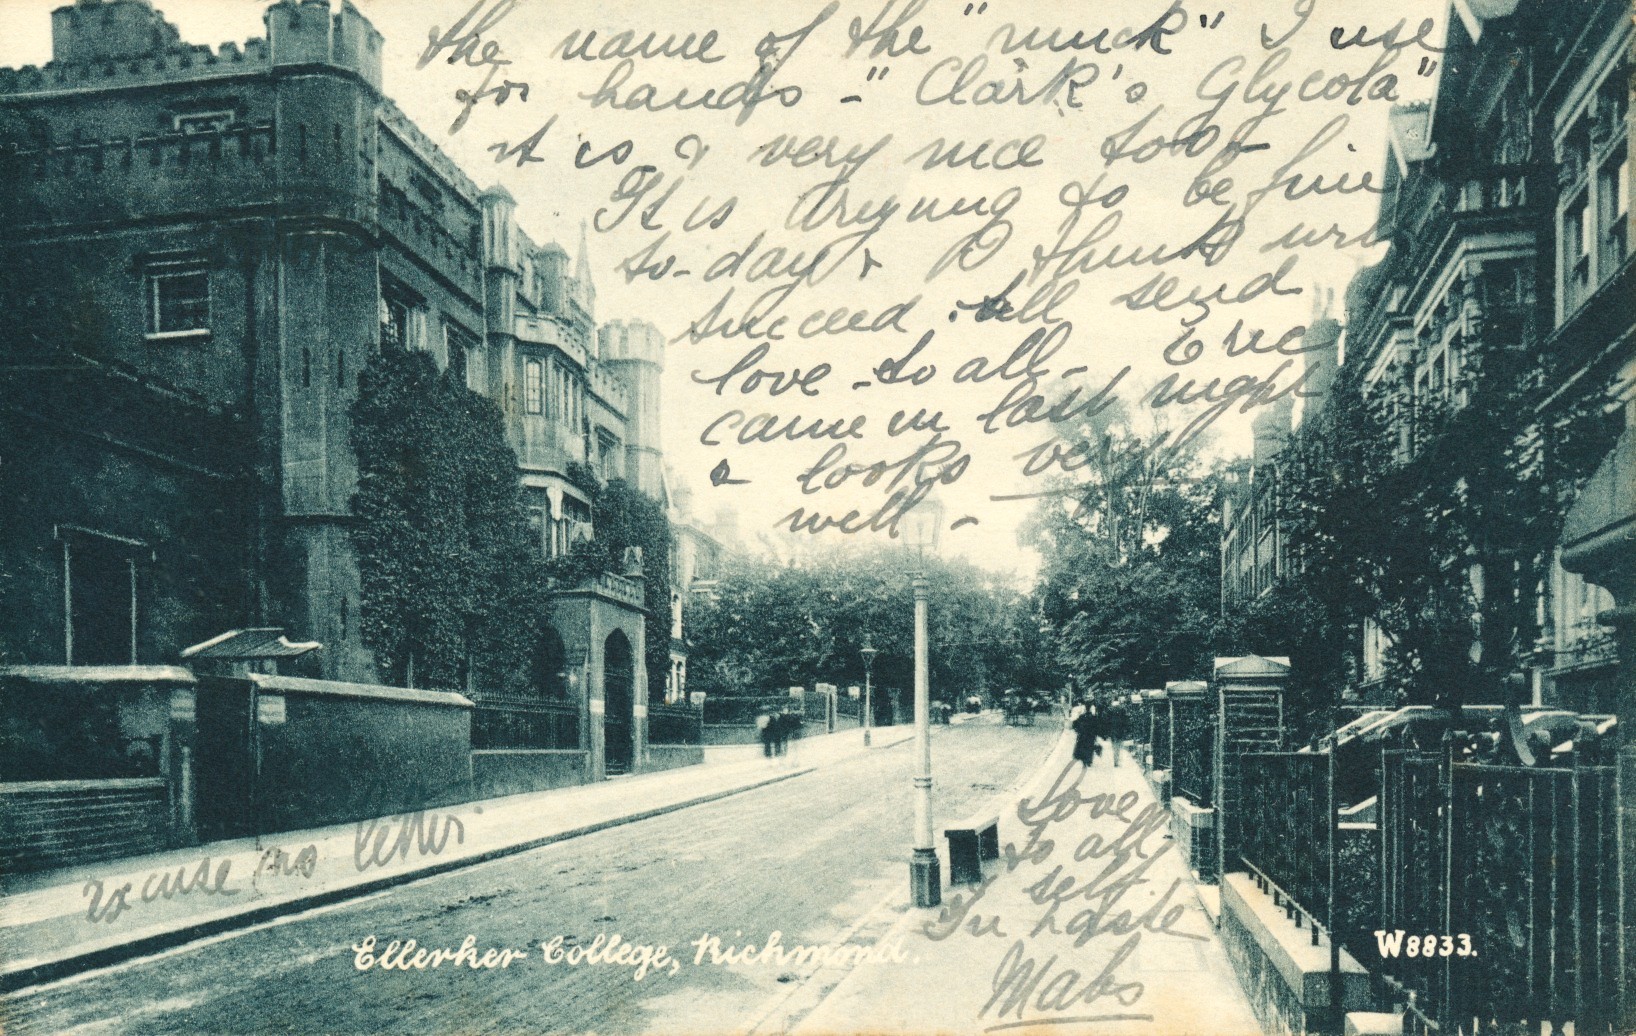 the name of the "muck" I use
for hands - "Clark's Glycola"
it is & very nice too -
It is trying to be fine
to-day & I think will
succeed. all send
love - to all - Eric
came in last night
& looks very
well -
Love
to all
self.
In haste
Mabs
excuse no letter
Ellerker College, Richmond.
W8833.